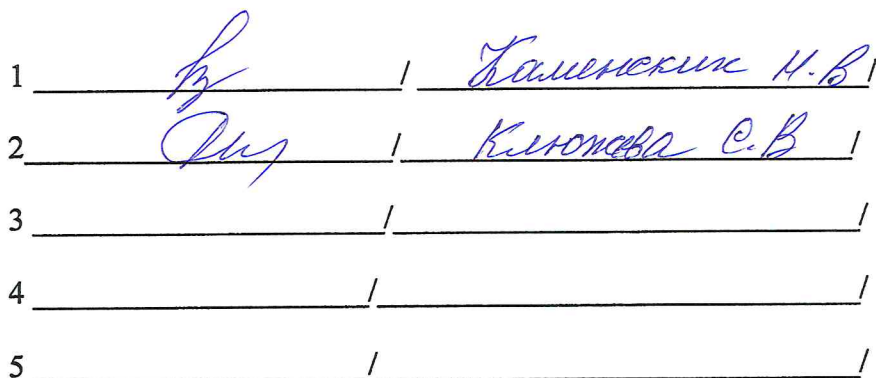 1 / Каменских Н.В /
2 / Клюжева С.В /
3 / /
4 / /
5 / /